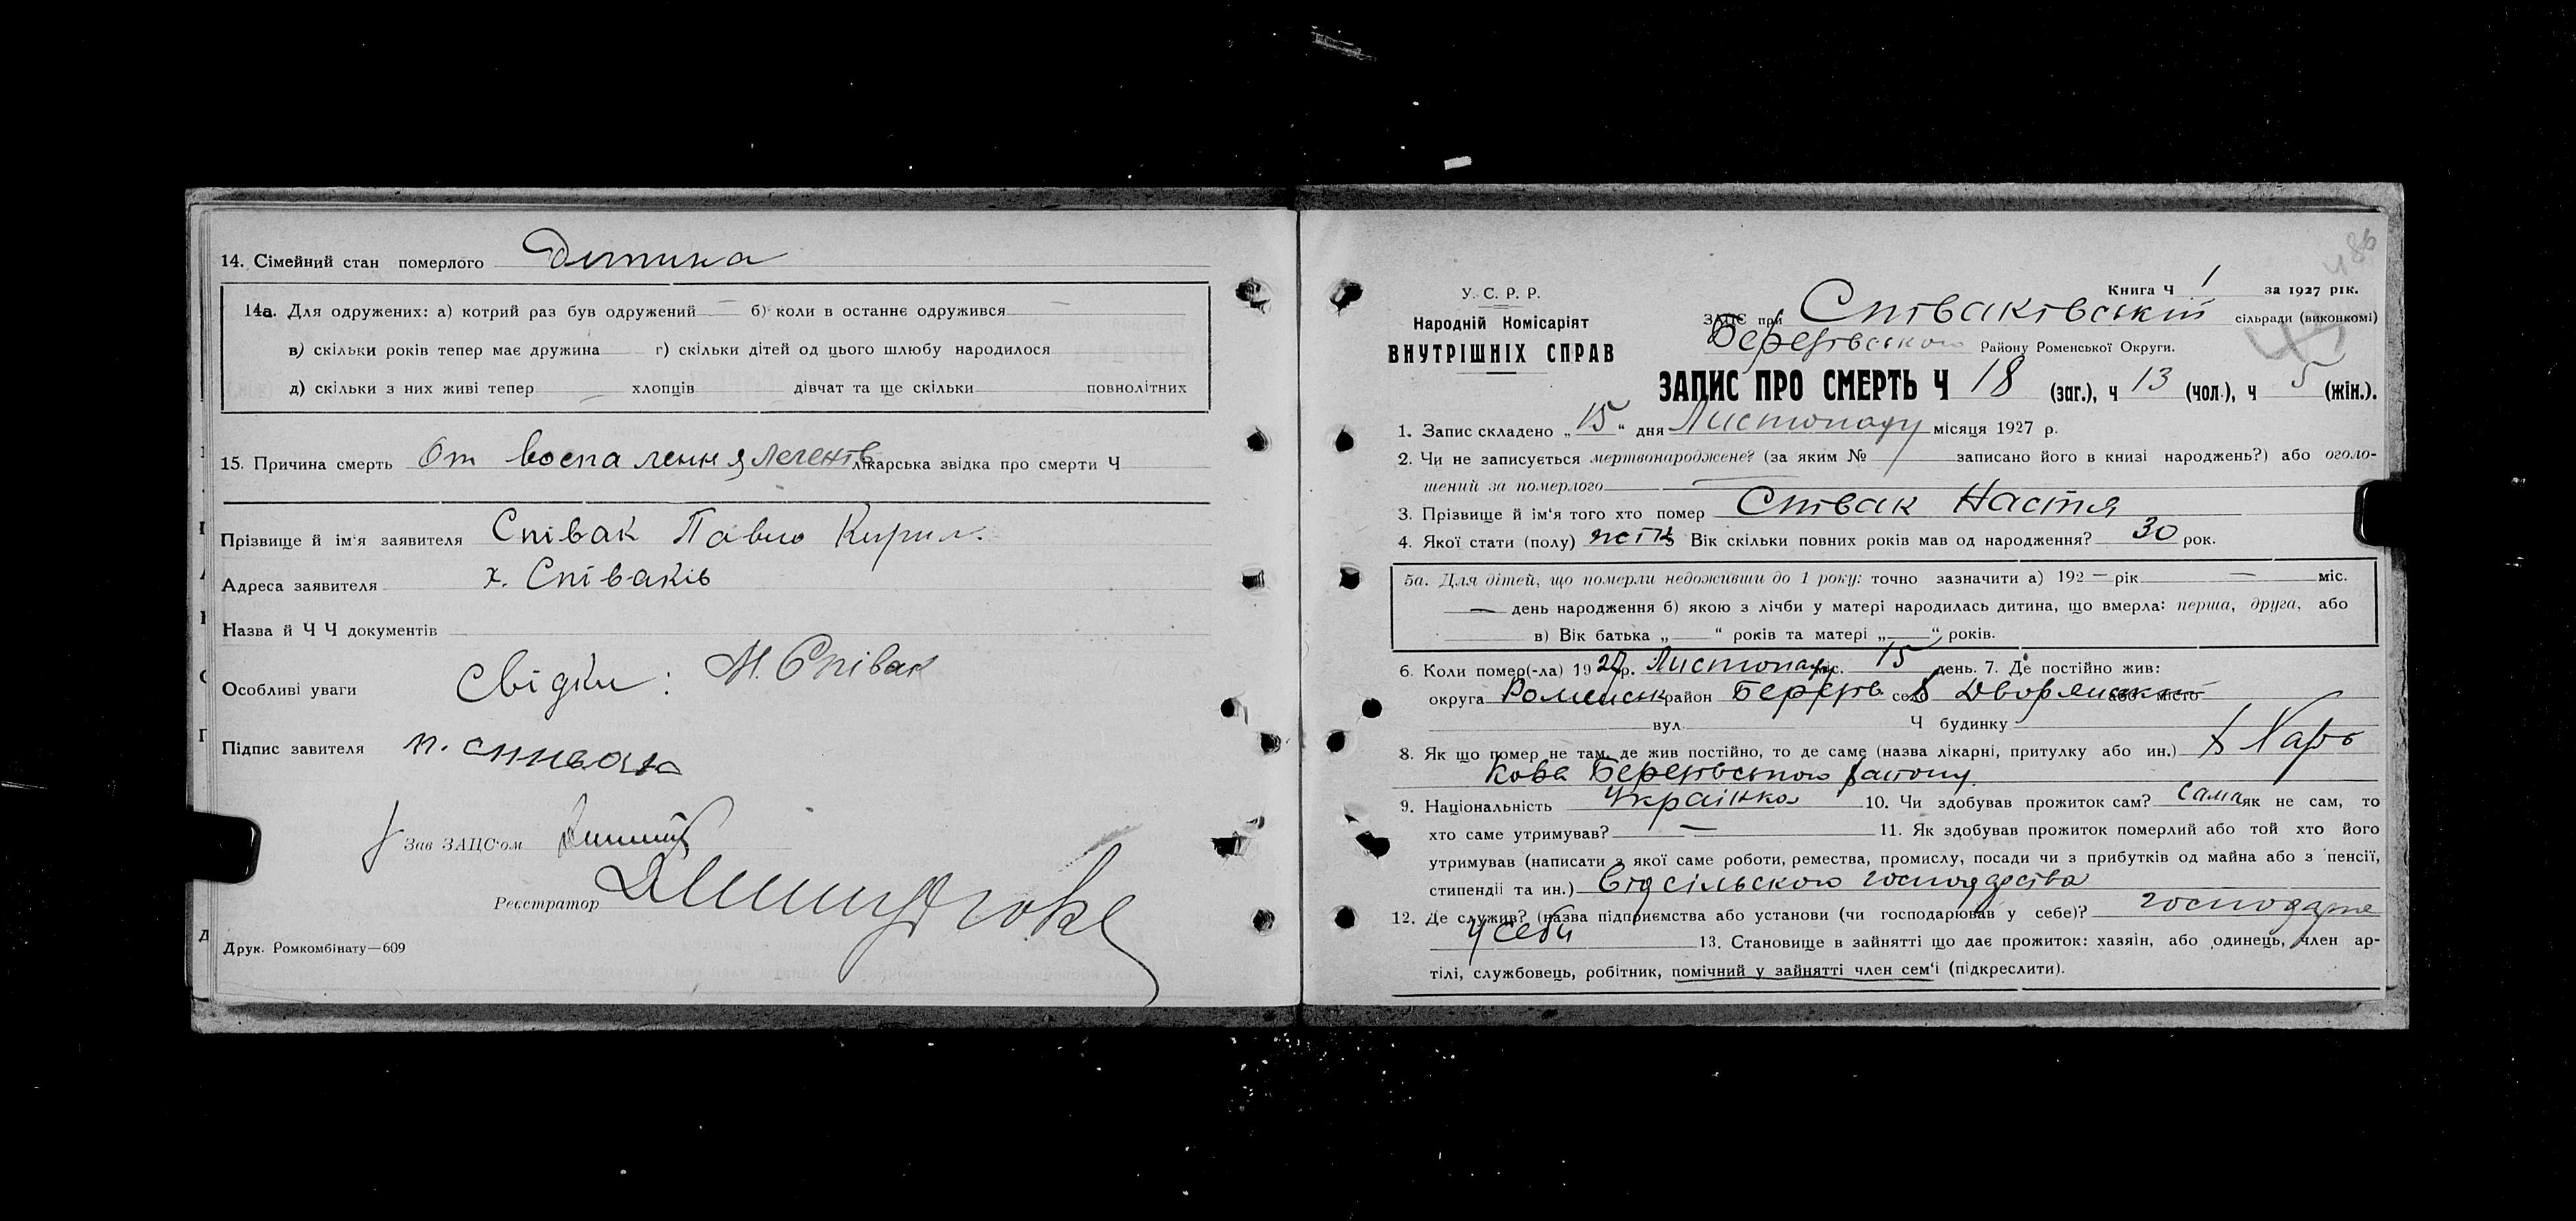 14. Сімейний стан померлого Дитина
14а. Для одружених: а) котрий раз був одружений — б) коли в останнє одружився —
в) скільки років тепер має дружина г) скільки дітей од цього шлюбу народилося
д) скільки з них живі тепер хлопців дівчат та ще скільки повнолітних
15. Причина смерть От воспалення легенів лікарська звідка про смерти Ч
Прізвище й ім'я заявителя Співак Павло Кирил.
Адреса заявителя х. Співаків
Назва й Ч Ч документів
Особливі уваги Свідки: М. Співак
Підпис завителя п. спивак
Зав ЗАЦС'ом
Реєстратор
Друк. Ромкомбінату—609
486
У. С. Р. Р.
Народній Комісаріят
ВНУТРІШНІХ СПРАВ
Книга Ч 1 за 1927 рік.
ЗАЦС при Співаківській сільради (виконкомі)
Березівського Району Роменської Округи.
ЗАПИС ПРО СМЕРТЬ Ч 18 (заг.), ч 13 (чол.), ч 5 (жін.).
1. Запис складено „15" дня Листопаду місяця 1927 р.
2. Чи не записується мертвонароджене? (за яким № записано його в книзі народжень?) або оголо-
шений за померлого
3. Прізвище й ім'я того хто помер Співак Настя
4. Якої стати (полу) Вік скільки повних років мав од народження? 30 рок.
5а. Для дітей, що померли недоживши до 1 року: точно зазначити а) 192 — рік — міс.
— день народження б) якою з лічби у матері народилась дитина, що вмерла: перша, друга, або
в) Вік батька „—" років та матері „—" років.
6. Коли помер(-ла) 1927р. Листопаду міс. 15 день. 7. Де постійно жив:
округа Роменськ район Березів село х Дворянський або місто
вул. Ч будинку
8. Як що помер не там, де жив постійно, то де саме (назва лікарні, притулку або ин.) х Харь
кове Березівського району
9. Національність Українка 10. Чи здобував прожиток сам? сама як не сам, то
хто саме утримував? — 11. Як здобував прожиток померлий або той хто його
утримував (написати з якої саме роботи, ремества, промислу, посади чи з прибутків од майна або з пенсії,
стипендії та ин.) Від сільського господарства
12. Де служив? (назва підприємства або установи (чи господарював у себе)? господарює
у себе 13. Становище в зайнятті що дає прожиток: хазяін, або одинець, член ар-
тілі, службовець, робітник, помічний у зайнятті член сем'ї (підкреслити).